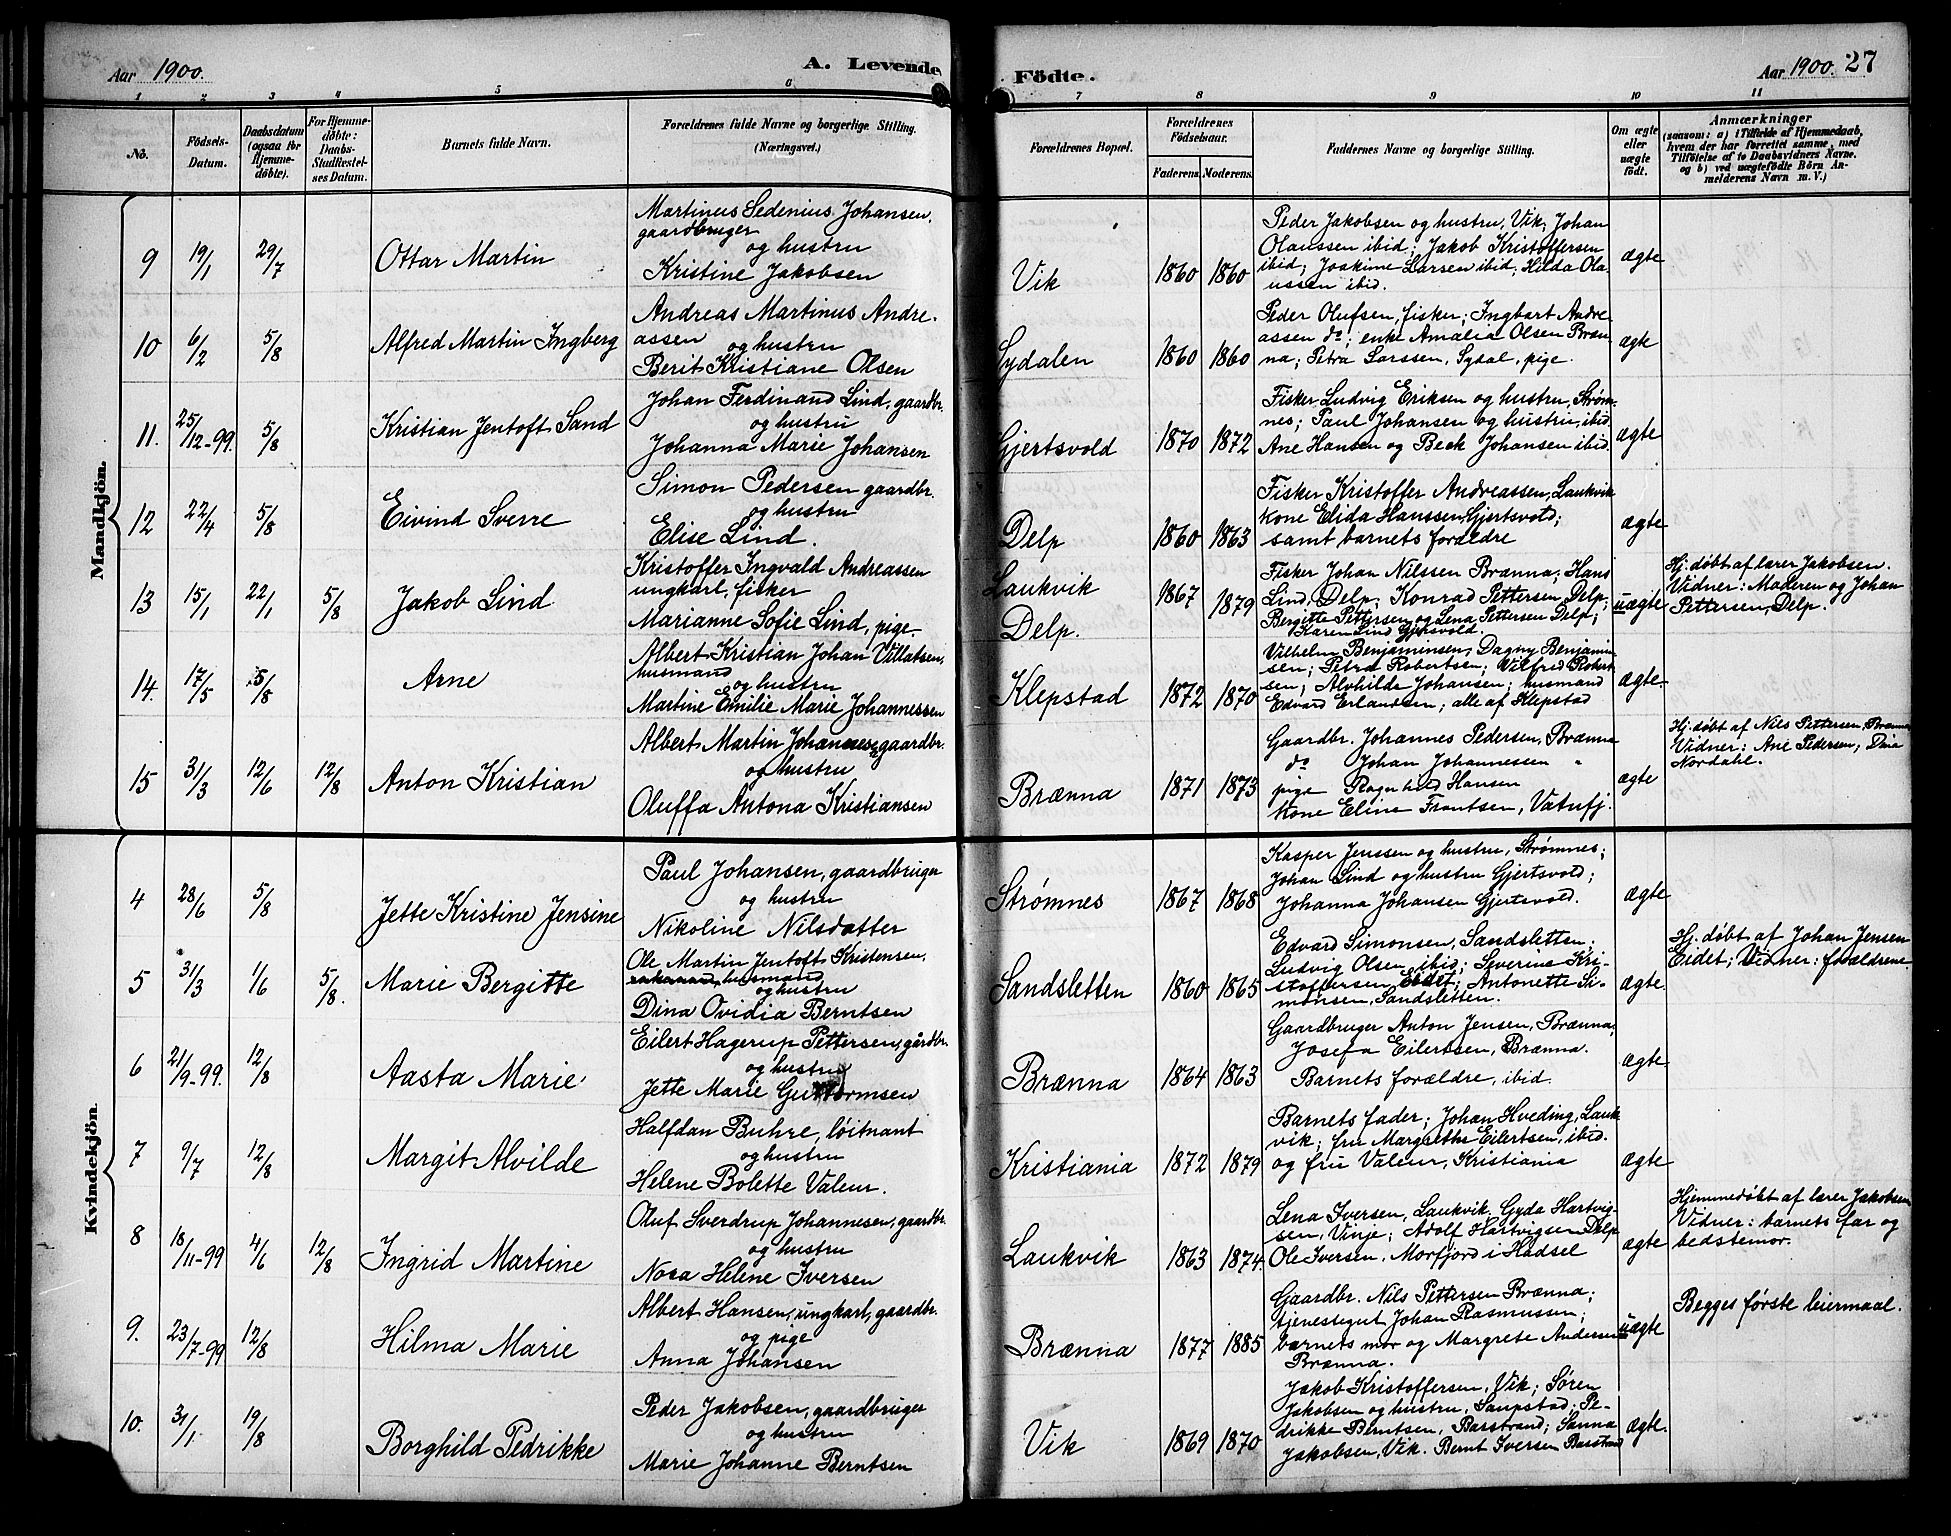 Aar 1900.
A. Levende Födte.
Aar 1900. 27
1 2 3 4 5 6 7 8 9 10 11
No.
Födsels-
Datum.
Daabsdatum
(ogsaa for
Hjemme-
døbte).
For Hjemme-
døbte:
Daabs-
Stadfæstel-
ses Datum.
Barnets fulde Navn.
Forældrenes fulde Navne og borgerlige Stilling.
(Næringsvei.)
Forældrenes Bopæl.
Forældrenes
Födselsaar.
Faderens. Moderens.
Faddernes Navne og borgerlige Stilling.
Om ægte
eller
uægte
født.
Anmærkninger
(saasom: a) i Tilfælde af Hjemmedaab,
hvem der har forrettet samme, med
Tilföielse af to Daabsvidners Navne.
og b) ved uægtefødte Börn An-
melderens Navn m. V.)
Mandkjön.
9 19/1 29/7 Ottar Martin
Martinus Sedenius Johansen,
gaardbruger
og hustru
Kristine Jakobsen
Vik 1860 1860
Peder Jakobsen og hustru, Vik; Johan
Olaussen ibid; Jakob Kristoffersen
ibid; Joakime Larsen ibid; Hilda Ola-
ussen ibid.
ægte
10 6/2 5/8 Alfred Martin Ingberg
Andreas Martinus Andre-
assen
og hustru
Berit Kristiane Olsen
Sydalen 1860 1860
Peder Olufsen, fisker; Ingbart Andre-
assen do; enke Amalia Olsen Bræn-
na; Petra Larssen, Sydal, pige.
ægte
11. 25/12-99. 5/8 Kristian Jentoft Sand
Johan Ferdinand Lind, gaardbr.
og hustru
Johanna Marie Johansen
Gjertsvold 1870 1872
Fisker Ludvig Eriksen og hustru, Strøm-
nes; Paul Johansen og hustru, ibid.
Ane Hansen og Beck Johansen ibid.
ægte
12 22/4 5/8 Eivind Sverre
Simon Pedersen gaardbr.
og hustru
Elise Lind.
Delp 1860 1863
Fisker Kristoffer Andreassen, Laukvik
kone Elida Hanssen, Gjertsvold;
samt barnets forældre
ægte
13 15/1 22/1 5/8 Jakob Lind
Kristoffer Ingvald Andreassen
ungkarl, fisker
Marianne Sofie Lind, pige.
Laukvik
Delp.
1867 1879
Fisker Johan Nilssen Brænna; Hans
Lind, Delp; Konrad Pettersen Delp;
Bergitte Pettersen og Lena Pettersen Delp;
Karen Lind Gjertsvold.
uægte
Hj. døbt af lærer Jakobsen.
Vidner: Moderen og Johan
Pettersen, Delp.
14. 17/5 5/8 Arne
Albert Kristian Johan Villatsen,
husmand
og hustru
Martine Emilie Marie Johannessen
Klepstad 1872 1870
Vilhelm Benjaminsen, Dagny Benjamin-
sen; Petra Robertsen; Vilfred Robert-
sen; Alvhilde Johansen; husmand
Edvard Erlandsen; alle af Klepstad
ægte.
15 31/3 12/6 12/8 Anton Kristian
Albert Martin Johannesen, gaardbr.
og hustru
Oluffa Antona Kristiansen
Brænna 1871 1873
Gaardbr. Johannes Pedersen, Brænna
do Johan Johannessen "
pige Ragnhild Hansen
kone Eline Frantsen, Vatnfj.
ægte
Hj. døbt af Nils Pettersen, Brænna
Vidner: Ane Pedersen; Dina
Nordahl.
Kvindekjön.
4 28/6 5/8 Jette Kristine Jensine
Paul Johansen, gaardbruger
og hustru
Nikoline Nilsdatter
Strømnes 1867 1868
Kasper Jenssen og hustru, Strømnes;
Johan Lind og hustru Gjertsvold;
Johanna Johansen Gjertsvold.
ægte
5 31/3 1/6 5/8. Marie Bergitte
Ole Martin Jentoft Kristensen,
husmand
og hustru
Dina Ovidia Berntsen
Sandsletten 1860 1865
Edvard Simonsen, Sandsletten;
Ludvig Olsen ibid; Severine Kri-
stoffersen Eidet; Antonette Si-
monsen, Sandsletten.
ægte.
Hj. døbt af Johan Jensen
Eidet; Vidner: forældrene.
6 21/9-99. 12/8 Aasta Marie
Eilert Hagerup Pettersen, gårdbr.
og hustru
Jette Marie Guttormsen
Brænna 1864 1863
Gaardbruger Anton Jensen, Brænna;
Josefa Eilertsen, Brænna.
Barnets forældre, ibid.
ægte
7 9/7 12/8 Margit Alvilde
Halfdan Buhre, løitnant
og hustru
Helene Bolette Valeur.
Kristiania 1872 1879
Barnets fader; Johan Hveding, Lauk-
vik; fru Margrethe Eilertsen, ibid.
og fru Valeur, Kristiania
ægte
8 18/11-99 4/6 12/8 Ingrid Martine
Oluf Sverdrup Johannesen, gaardbr.
og hustru
Nora Helene Iversen
Laukvik 1863 1874.
Lena Iversen, Laukvik. Gyda Hartvig-
sen, Vinje; Adolf Hartvigsen Delp
Ole Iversen, Morfjord i Hadsel
ægte
Hjemmedøbt af lærer Jakobsen
Vidner: barnets far og
bedstemor.
9. 23/7-99 12/8 Hilma Marie
Albert Hansen, ungkarl, gaardbr.
og pige
Anna Johansen
Brænna 1877 1885
Gaardbr. Nils Pettersen Brænna;
tjenestegut Johan Rasmussen;
barnets mor og Margrete Andersen
Brænna.
uægte
Begges første leiermaal.
10. 31/1 19/8 Borghild Pedrikke
Peder Jakobsen, gaardbruger
og hustru
Marie Johanne Berntsen
Vik 1869 1870
Jakob Kristoffersen, Vik; Søren
Jakobsen og hustru, Saupstad; Pe-
drikke Berntsen, Barstrand; Sanna
Jakobsen, Vik. Bernt Iversen Barstrand
ægte.